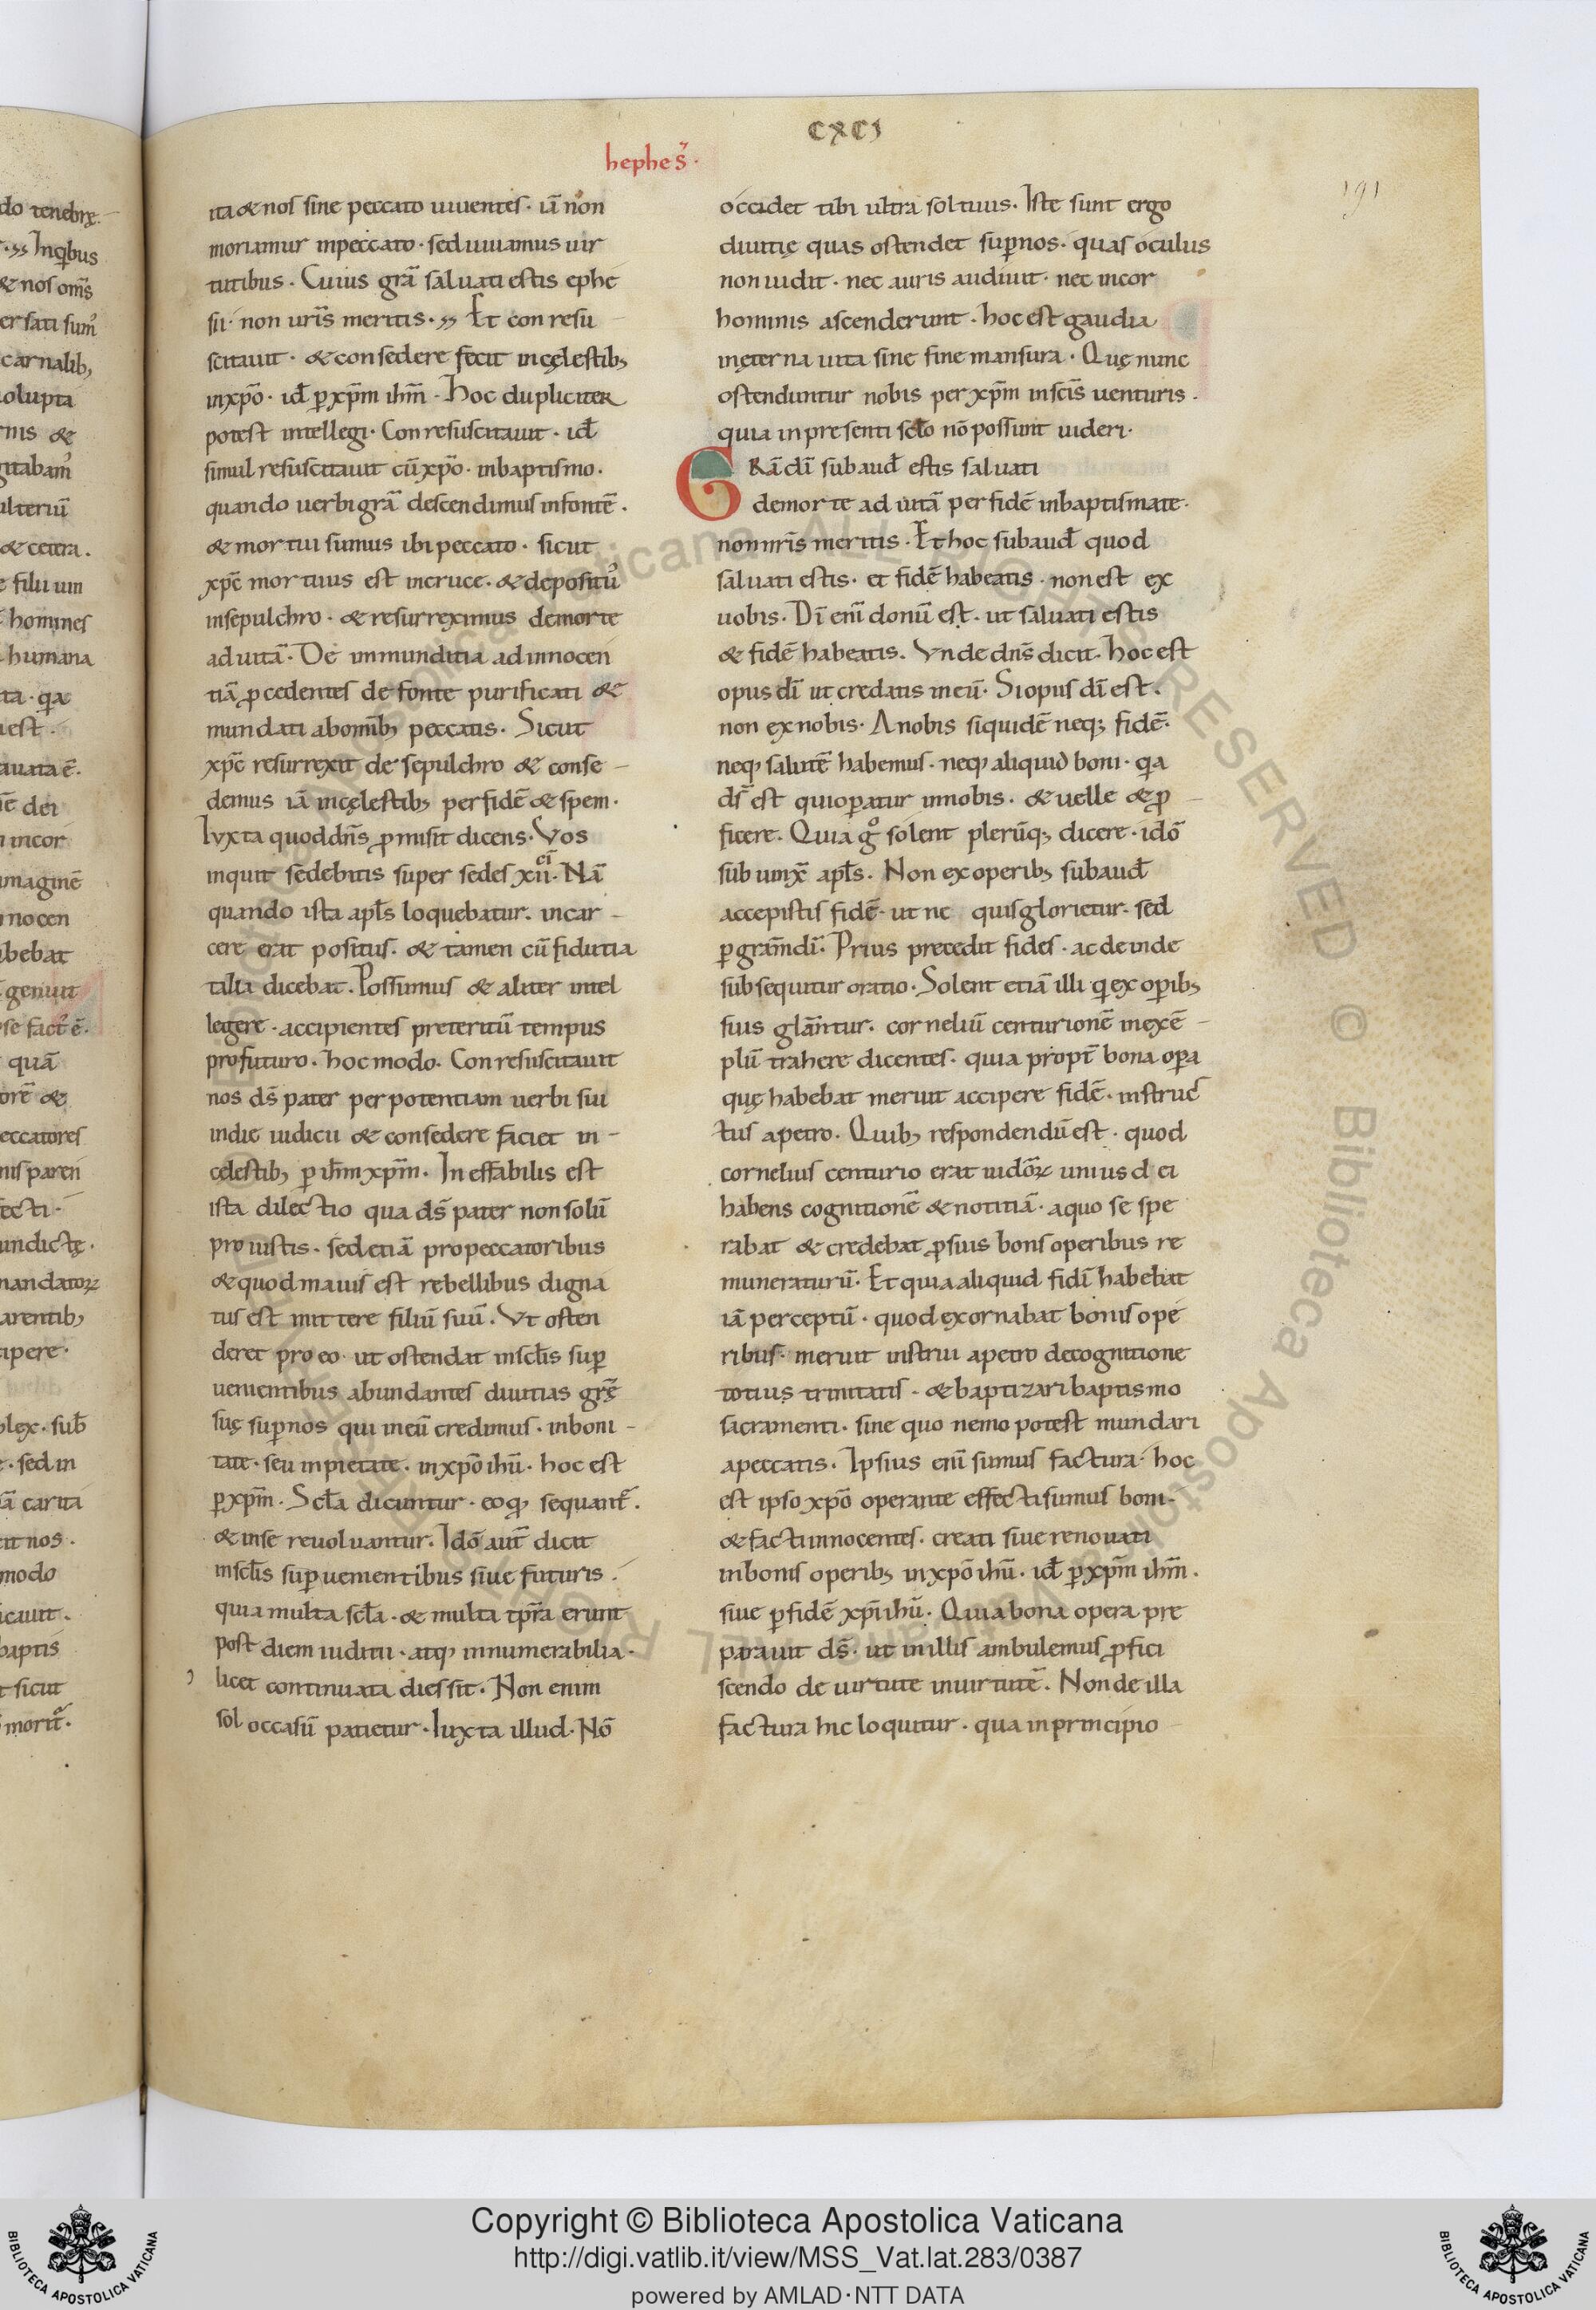 CXCI
hephes̃·
191
ita & nos sine peccato uiuentes · iã non
moriamur inpeccato · sed uiuamus uir
tutibus · Cuius grã saluati estis ephe
sii · non ur̃is meritis · Et con resu
scitauit · & consedere fecit incęlestib;
inxp̃o · id̃ p xp̃m ihm̃ · Hoc dupliciter
potest intellegi · Conresuscitauit · id̃
simul resuscitauit cũ xp̃o · inbaptismo ·
quando uerbi grã descendimus infontẽ ·
& mortui sumus ibi peccato · sicut
xp̃c mortuus est incruce · & deposit᾿
insepulchro · & resurreximus demorte
ad uitã · De inmunditia ad innocen
tiã p̱cedentes de fonte purificati &
mundati abom̃ib; peccatis · Sicut
xp̃c resurrexit de sepulchro & conse
demus iã incęlestib; per fidẽ & spem ·
Iuxta quod dñs p̱misit dicens · Vos
inquit sedebitis super sedes xii · Nã
quando ista apl̃s loquebatur · incar
cere erat positus · & tamen cũ fidutia
talia dicebat · Possumus & aliter intel
legere · accipientes preteritũ tempus
profuturo · hoc modo · Conresuscitauit
nos ds̃ pater per potentiam uerbi sui
indie iudicii & consedere faciet in
cęlestib; p ihm̃ xp̃m · Ineffabilis est
ista dilectio qua ds̃ pater non solũ
pro iustis · sed etiã pro peccatoribus
& quod maius est rebellibus digna
tus est mittere filiũ suũ · Vt osten
deret pro eo · ut ostendat inscl̃is sup
uenientibus abundantes diuitias grę̃
suę sup nos qui ineũ credimus · inboni
tate · seu inpietate · inxp̃o ihũ · hoc est
p xp̃m · Scl̃a dicuntur · eo q; sequant̃ ·
& inse reuoluantur · Idõ aut̃ dicit
inscl̃is sup uenientibus siue futuris ·
quia multa scl̃a · & multa tp̃ra erunt
post diem iuditii · atq; innumerabilia ·
licet continuata dies sit · Non enim
sol occasũ patietur · Iuxta illud · Nõ
occidet tibi ultra sol tuus · Iste sunt ergo
diuitię quas ostendet sup nos · quas oculus
non uidit · nec auris audiuit · nec incor
hominis ascenderunt · hoc est gaudia
inęterna uita sine fine mansura · Quę nunc
ostenduntur nobis per xp̃m inscĩs uenturis ·
quia in presenti sclo nõ possunt uideri ·
Grã dĩ subaud̃ estis saluati
demorte ad uitã per fidẽ inbaptismate ·
non ur̃is meritis · Et hoc subaud̃ quod
saluati estis · et fidẽ habeatis · non est ex
uobis · Dĩ enĩ donũ est · ut saluati estis
& fidẽ habeatis · Vnde dñs dicit · Hoc est
opus dĩ ut credatis ineũ · Si opus dĩ est ·
non ex nobis · A nobis siquidẽ neq; fidẽ ·
neq; salutẽ habemus · neq; aliquid boni · qia
ds̃ est qui opatur innobis · & uelle & p̱
ficere · Quia g° solent plerũq; dicere · idõ
subiunx̃ apl̃s · Non ex operib; subaud̃
accepistis fidẽ · ut ne quis glorietur · sed
p gram̃ dĩ · Prius precedit fides · ac deinde
subsequitur oratio · Solent etiã illi qi ex opib;
suis glãntur · corneliũ centurionẽ inexẽ
plũ trahere dicentes · quia propt̃ bona opa
quę habebat meruit accipere fidẽ · instruc
tus apetro · Quib; respondendũ est · quod
cornelius centurio erat iudõꝝ unius dei
habens cognitionẽ & notitiã · aquo se spe
rabat & credebat p̱suis bonis operibus re
muneraturũ · Et quia aliquid fidĩ habebat
iã perceptũ · quod exornabat bonis ope
ribus · meruit instrui apetro decognitione
totius trinitatis · & baptizari baptismo
sacramenti · sine quo nemo potest mundari
apeccatis · Ipsius enĩ sumus factura · hoc
est ipso xp̃o operante effecti sumus boni ·
& facti innocentes · creati siue renouati
inbonis operib; inxp̃o ihũ · id̃ p xp̃m ihm̃ ·
siue p fidẽ xp̃i ihũ · Quia bona opera pre
parauit ds̃ · ut inillis ambulemus p̱fici
scendo de uirtute inuirtutẽ · Non de illa
factura hic loquitur · qua inprincipio
Copyright © Biblioteca Apostolica Vaticana
http://digi.vatlib.it/view/MSS_Vat.lat.283/0387
powered by AMLAD·NTT DATA